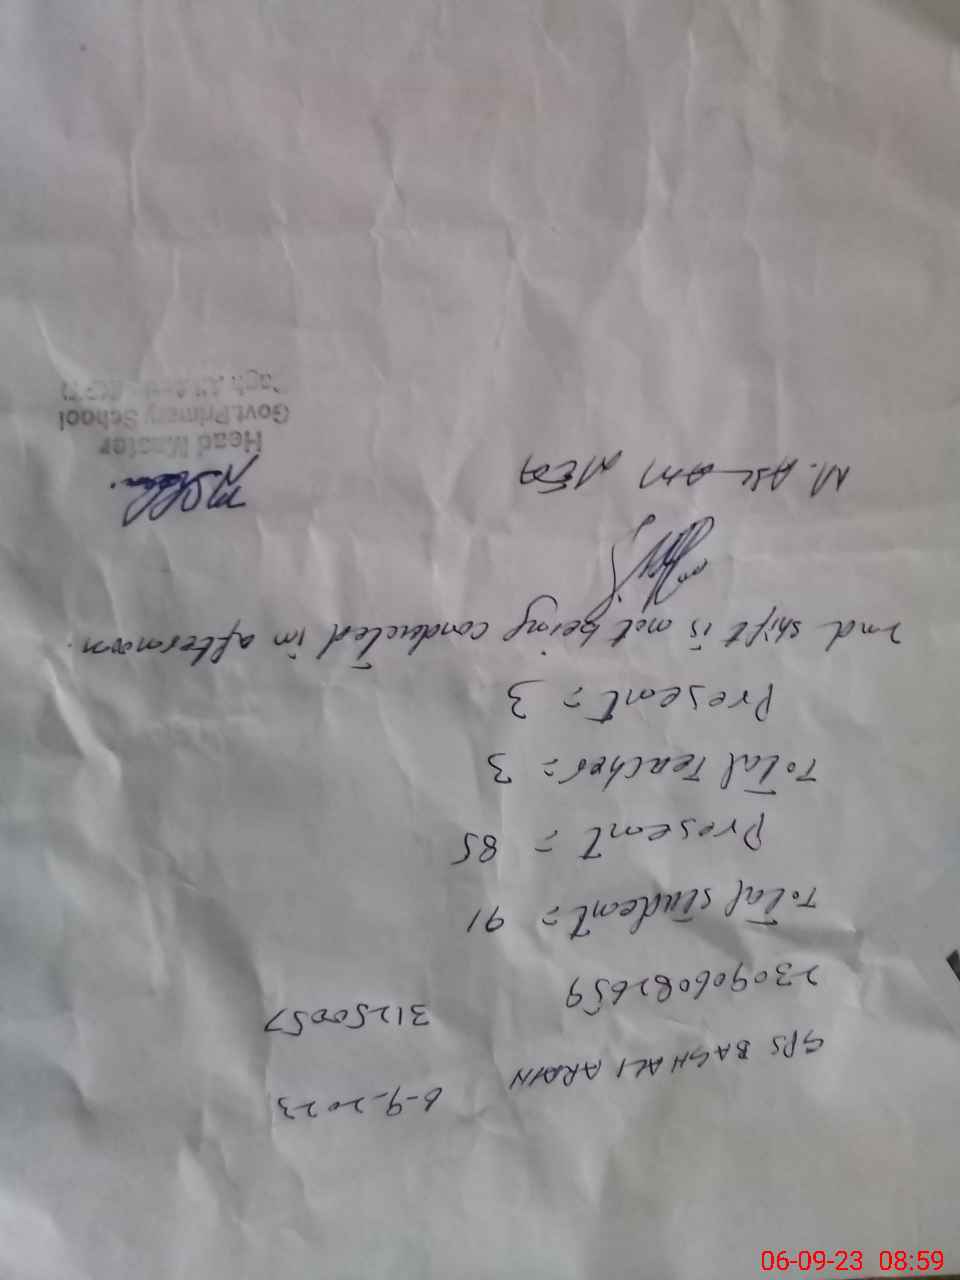 6-9-2023
GPS BAGH ALI ARAIN
31250057
230906082659
Total student = 91
Present = 85
Total Teacher = 3
Present = 3
2nd shift is not being conducted in afternoon.
M. ASLAM MEA
Head Master
Govt.Primary School
06-09-23 08:59